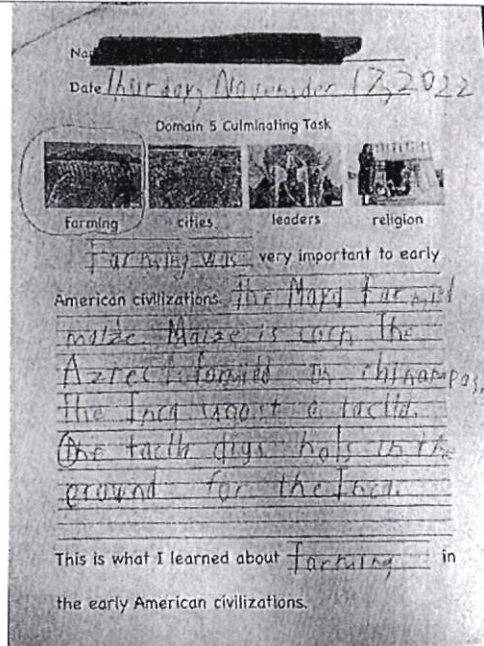 Na
Date Thurday, November 17, 2022
Domain 5 Culminating Task
farming cities leaders religion
farming was very important to early
American civilizations. The Maya farmed
maize. Maize is corn The
Aztec farmed in chinampas.
The Inca a taclla.
One taclla digs hols in the
ground for the Inca.
This is what I learned about farming in
the early American civilizations.